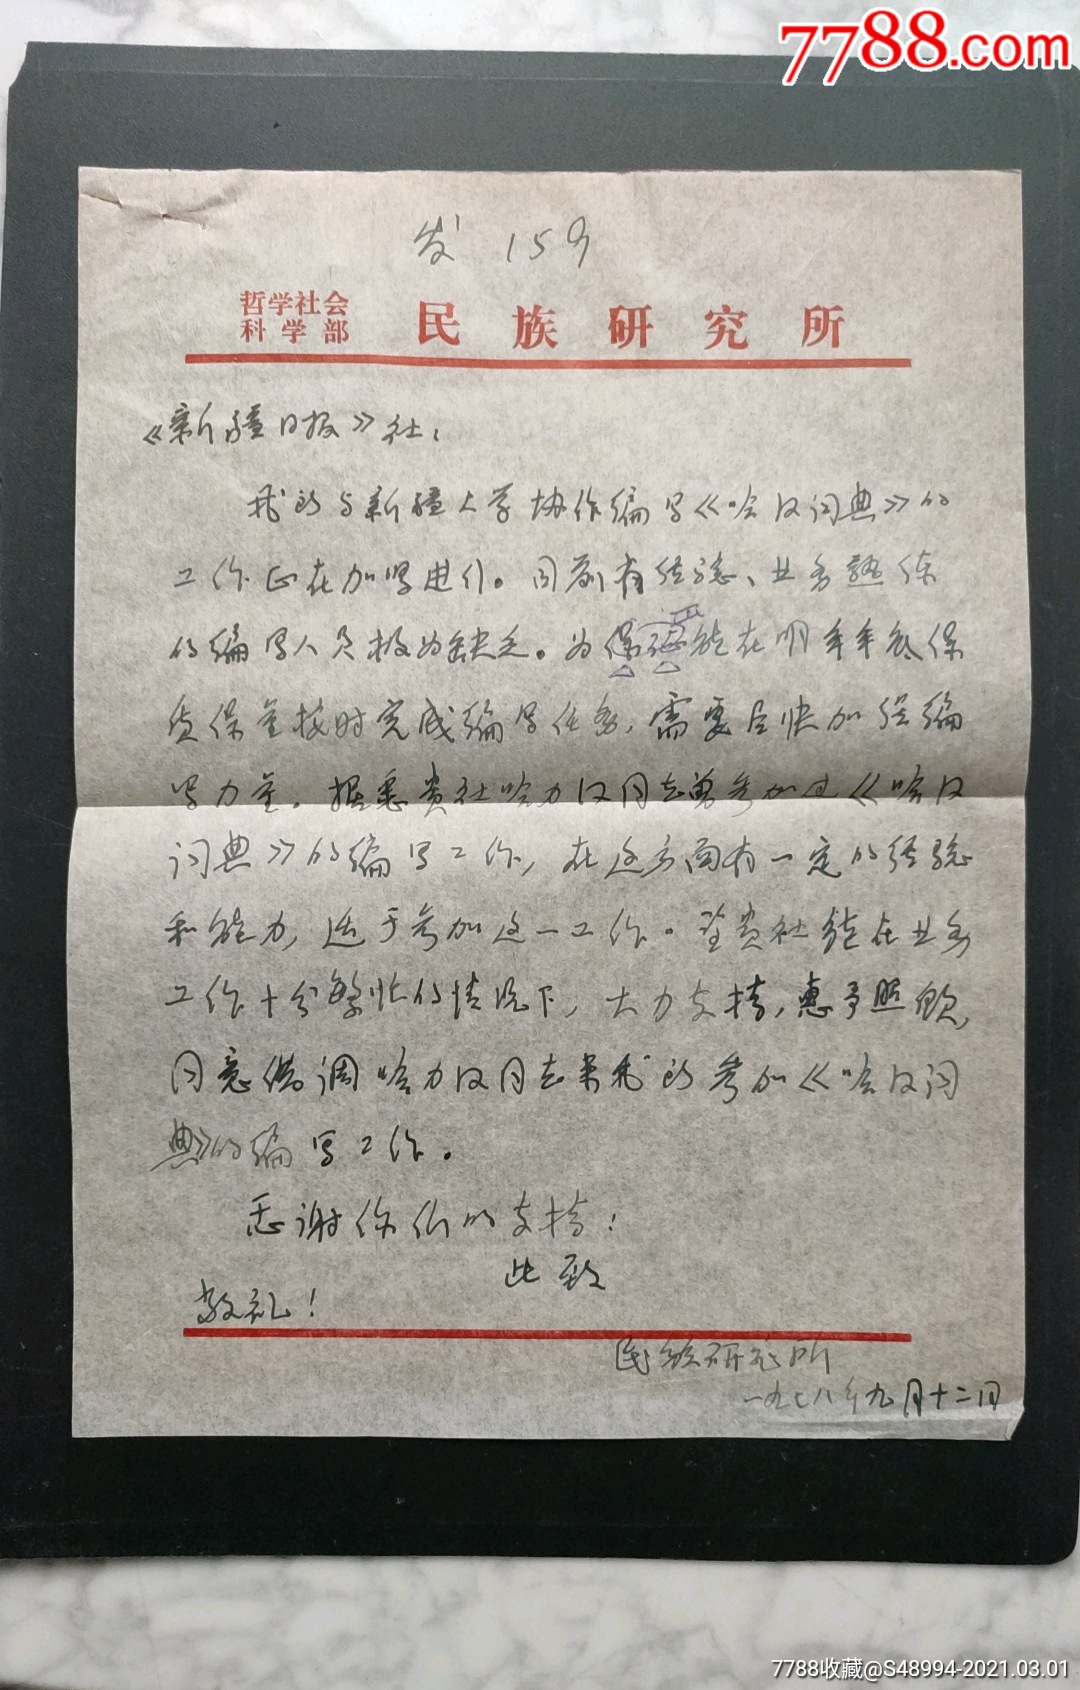 7788.com
发 159
哲学社会
科学部 民族研究所
《新疆日报》社：
我所与新疆大学协作编写《哈汉词典》的
工作正在加紧进行。目前有经验、业务熟练
的编写人员极为缺乏。为保证能在明年年底保
质保量按时完成编写任务，需要尽快加强编
写力量。据悉贵社哈力汉同志曾参加过《哈汉
词典》的编写工作，在这方面有一定的经验
和能力，适于参加这一工作。望贵社能在业务
工作十分繁忙的情况下，大力支持，惠予照顾，
同意借调哈力汉同志来我所参加《哈汉词
典》的编写工作。
感谢你们的支持！
此致
敬礼！
民族研究所
一九七八年九月十二日
7788收藏@S48994-2021.03.01